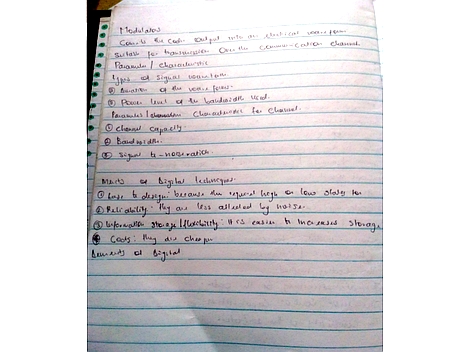 Modulator
Converts the Coder output into an electrical waveform
Suitable for transmission Over the Communication channel.
Parameter / characteristic
types of signal waveform
② Duration of the wave form.
③ Power level of the bandwidth used.
Characteristic for Channel.
① Channel Capacity.
② Bandwidth.
③ Signal to-noise ratio.
Merits of Digital techniques.
① Ease to design: because they required high or low states
② Reliability: They are less affected by noise.
③ Information storage flexibility: It is easier to increases Storage
④ Costs: They are cheaper
Demerits of Digital